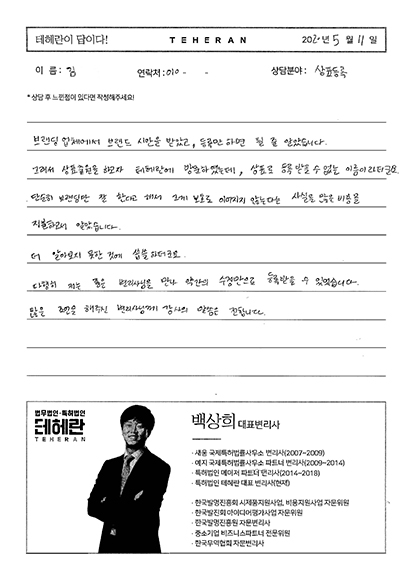 테헤란이 답이다!
TEHERAN
2021년 5월 11일
이 름 : 김
연락처 : 010 - -
상담분야 : 상표등록
* 상담 후 느낀점이 있다면 작성해주세요!
브랜딩 업체에서 브랜드 시안을 받았고, 등록만 하면 될 줄 알았습니다.
그래서 상표출원을 하고자 테헤란에 방문하였는데, 상표로 등록받을 수 없는 이름이라더군요.
단순히 브랜딩만 잘 한다고 해서 그게 보호로 이어지지 않는다는 사실을 많은 비용을
지불하고서 알았습니다.
더 알아보지 못한 것에 씁쓸하더군요.
다행히 저는 좋은 변리사님을 만나 약간의 수정만으로 등록받을 수 있었습니다.
많은 조언을 해주신 변리사님께 감사의 말씀을 전합니다.
법무법인·특허법인
테헤란
TEHERAN
백상희 대표변리사
· 새움 국제특허법률사무소 변리사(2007~2009)
· 예지 국제특허법률사무소 파트너 변리사(2009~2014)
· 특허법인 메이저 파트너 변리사(2014~2018)
· 특허법인 테헤란 대표 변리사(현재)
· 한국발명진흥회 시제품지원사업, 비용지원사업 자문위원
· 한국발진회 아이디어평가사업 자문위원
· 한국발명진흥원 자문변리사
· 중소기업 비즈니스파트너 전문위원
· 한국무역협회 자문변리사